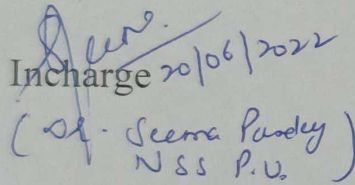 Incharge 20/06/2022
(Dr. Seema Pandey
NSS P.U. )